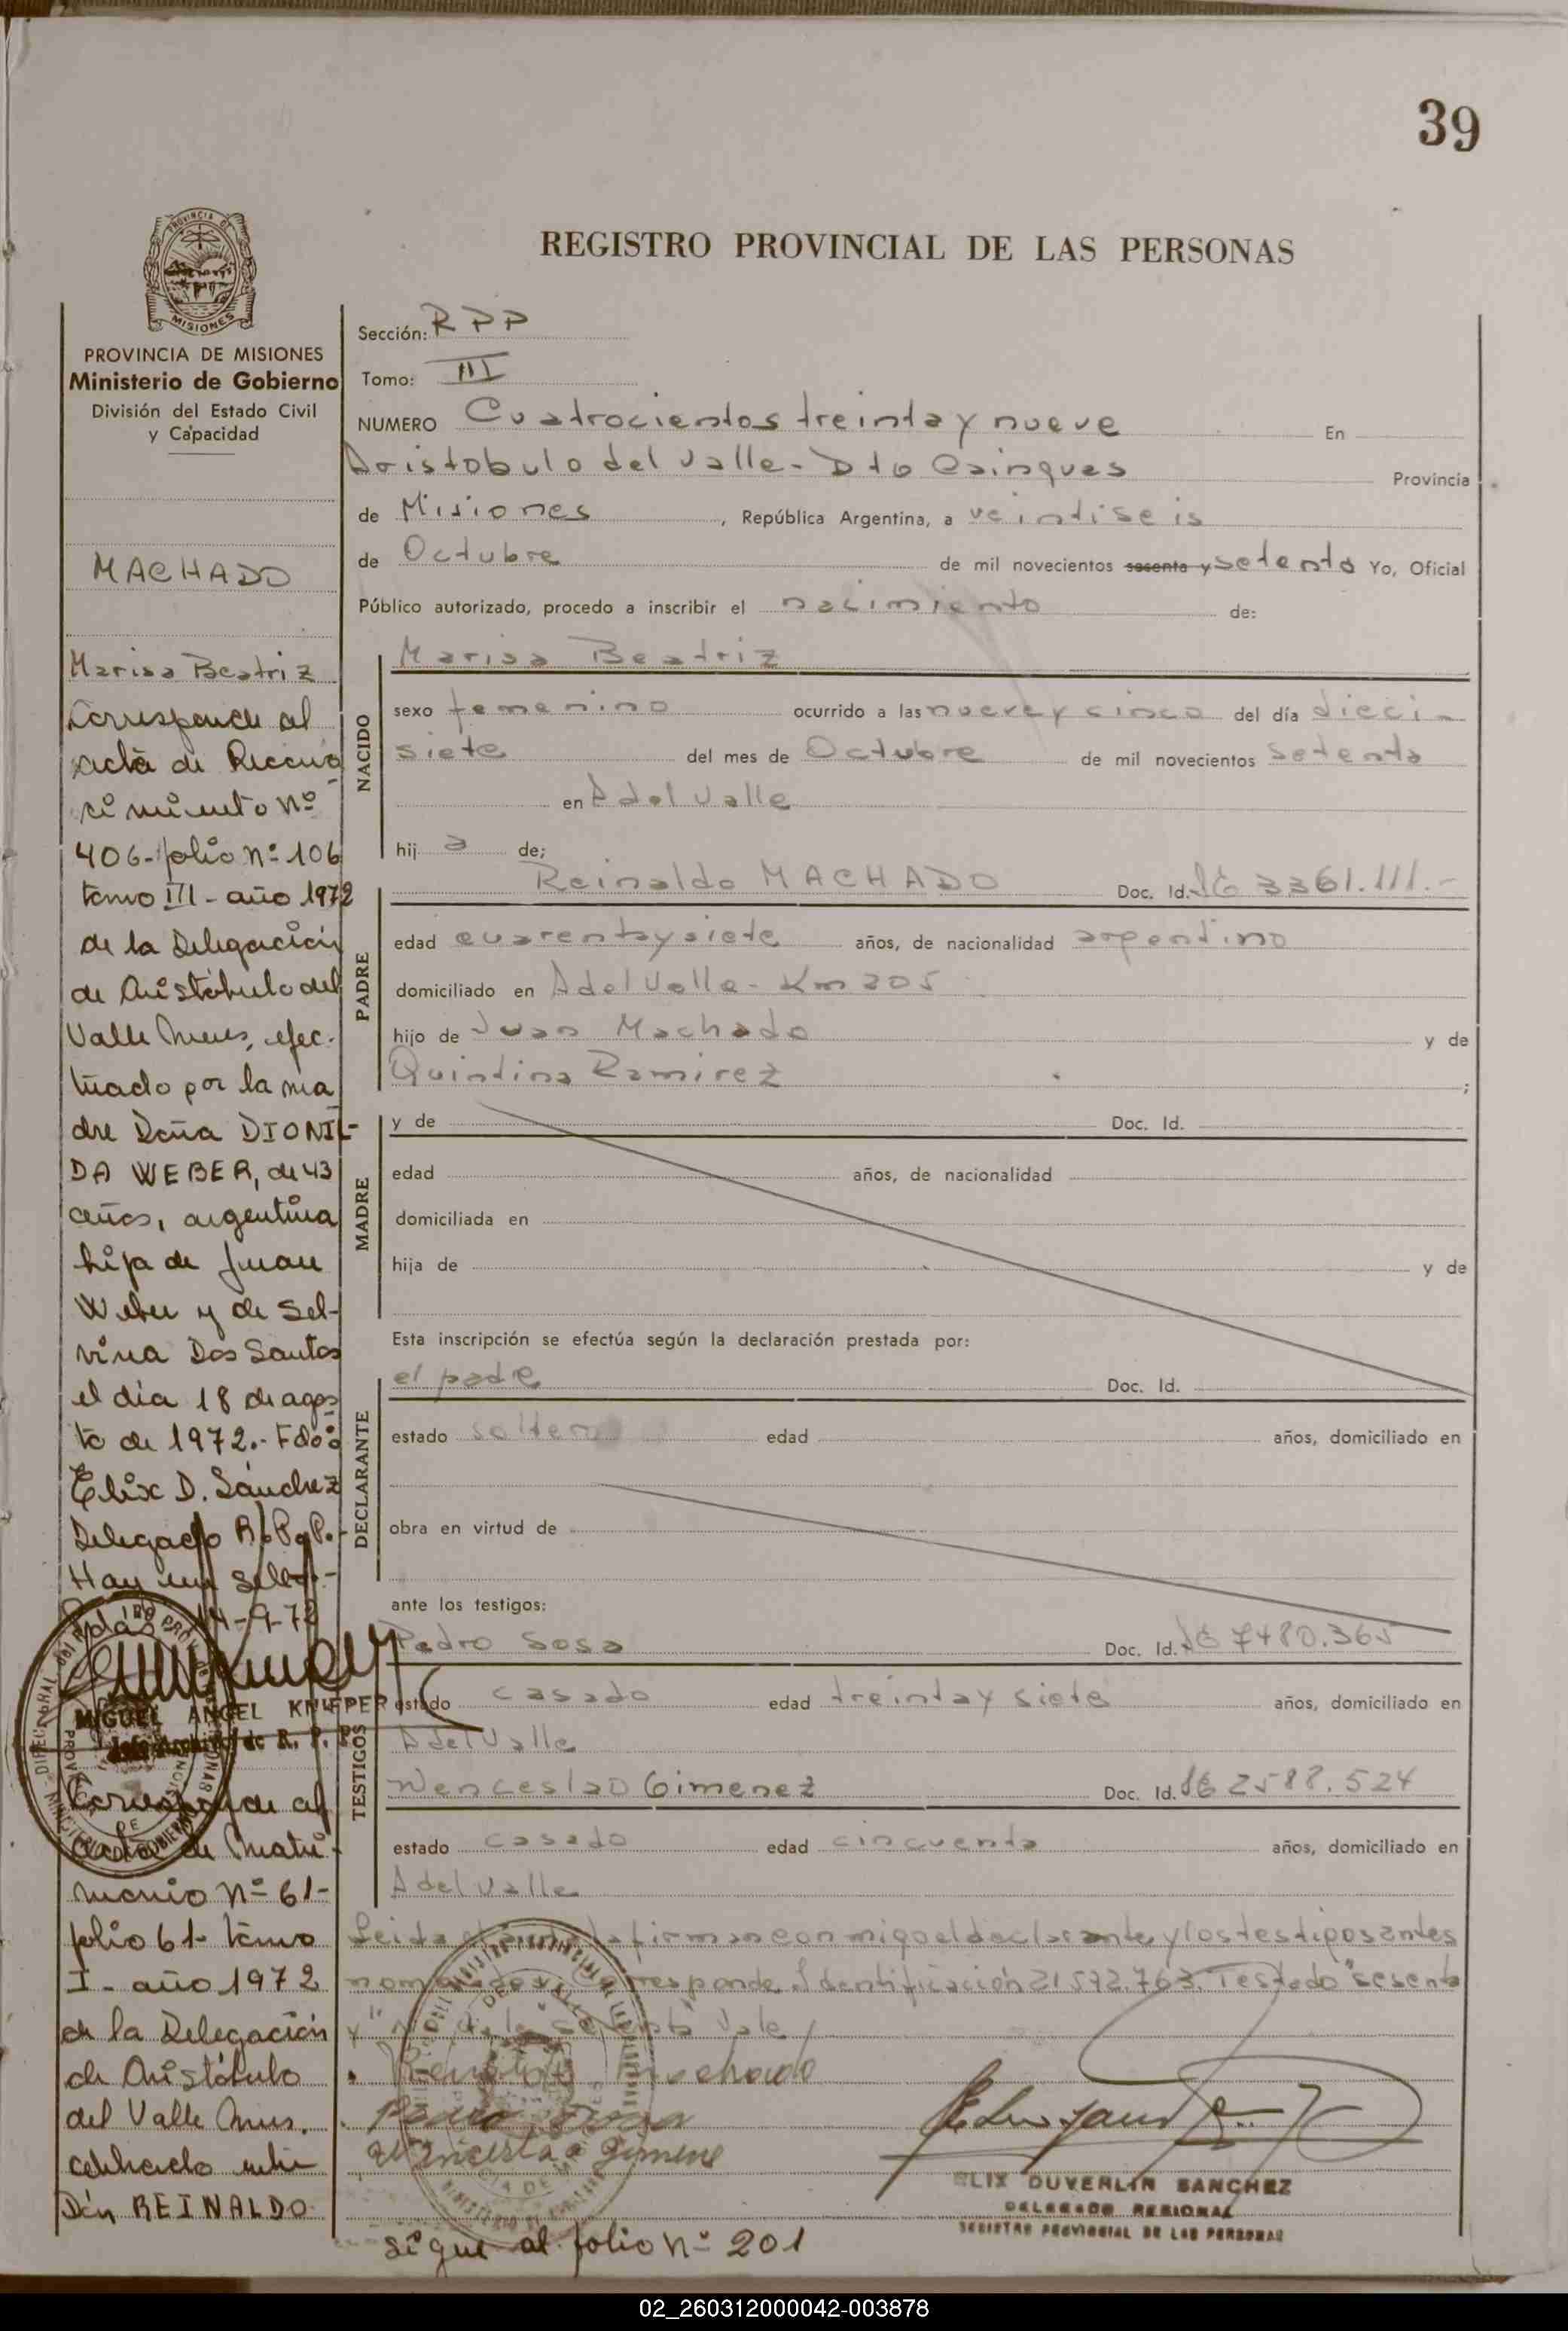 39
PROVINCIA DE
MISIONES
PROVINCIA DE MISIONES
Ministerio de Gobierno
División del Estado Civil
y Capacidad
MACHADO
Marisa Beatriz
Corresponde al
acta de Recono
cimiento Nº
406-folio nº 106
tomo III - año 1972
de la Delegación
de Aristóbulo del
Valle Mnes, efec-
tuado por la ma
dre Doña DIONIL-
DA WEBER, de 43
años, argentina
hija de Juan
Weber y de Sel-
vina Dos Santos
el día 18 de agos
to de 1972.- Fdo:
Elix D. Sánchez
Delegado R.P.P.-
Hay un sello.-
14-9-72
MIGUEL ANGEL KNIEPER
R. P. P.
Corresponde al
acta de Matri-
monio Nº 61-
folio 61- tomo
I - año 1972
de la Delegación
de Aristóbulo
del Valle Mnes.
celebrado entre
Dón REINALDO
REGISTRO PROVINCIAL DE LAS PERSONAS
Sección: RPP
Tomo: III
NUMERO Cuatrocientos treinta y nueve En
Aristobulo del Valle - Dto Cainguas Provincia
de Misiones, República Argentina, a veintiseis
de Octubre de mil novecientos sesenta y setenta Yo, Oficial
Público autorizado, procedo a inscribir el nacimiento de:
NACIDO
Marisa Beatriz
sexo femenino ocurrido a las nueve y cinco del día dieci-
siete del mes de Octubre de mil novecientos setenta
en A del Valle
hij a de;
PADRE
Reinaldo MACHADO Doc. Id. 3361.111.-
edad cuarenta y siete años, de nacionalidad argentino
domiciliado en A del Valle - Km 205
hijo de Juan Machado y de
Quintina Ramirez ;
MADRE
y de Doc. Id.
edad años, de nacionalidad
domiciliada en
hija de y de
Esta inscripción se efectúa según la declaración prestada por:
DECLARANTE
el padre Doc. Id.
estado soltero edad años, domiciliado en
obra en virtud de
ante los testigos:
TESTIGOS
Pedro Sosa Doc. Id. 7480.365
estado casado edad treinta y siete años, domiciliado en
A del Valle
Wenceslao Gimenez Doc. Id. 2588.524
estado casado edad cincuenta años, domiciliado en
A del Valle
Leida el acta la firman conmigo el declarante y los testigos antes
nombrados Corresponde Identificación 21.572.763. Testado "sesenta
y" "setenta" Vale
Reinaldo Machado
Pedro Sosa
Wenceslao Gimene
ELIX DUVERLIN SANCHEZ
DELEGADO REGIONAL
REGISTRO PROVINCIAL DE LAS PERSONAS
sigue al folio nº 201
02_260312000042-003878